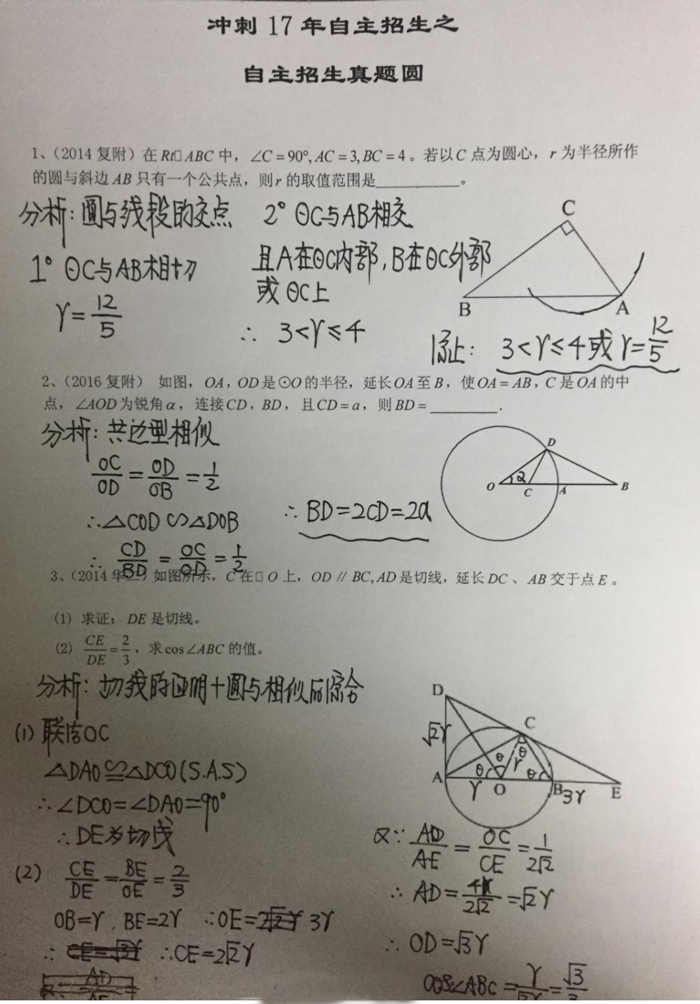 冲刺 17 年自主招生之
自主招生真题圆
1、(2014 复附) 在 Rt□ ABC 中，∠C = 90°, AC = 3, BC = 4 。若以 C 点为圆心，r 为半径所作
的圆与斜边 AB 只有一个公共点，则 r 的取值范围是__________。
分析：圆与线段的交点
1° ⊙C与AB相切
r = 12/5
2° ⊙C与AB相交
且A在⊙C内部，B在⊙C外部
或 ⊙C上
∴ 3<r≤4
综上： 3<r≤4或 r=12/5
C
B
A
2、(2016 复附) 如图，OA，OD 是⊙O 的半径，延长 OA 至 B，使 OA = AB，C 是 OA 的中
点，∠AOD 为锐角 α，连接 CD，BD，且 CD = a，则 BD = ________.
分析：共边型相似
OC/OD = OD/OB = 1/2
∴△COD∽△DOB
∴ CD/BD = OC/OD = 1/2
∴ BD=2CD=2a
D
O α C A B
3、(2014 华二) 如图所示，C 在□ O 上，OD // BC, AD 是切线，延长 DC 、 AB 交于点 E 。
(1) 求证：DE 是切线。
(2) CE/DE = 2/3，求 cos∠ABC 的值。
分析：切线的证明+圆与相似的综合
(1) 联结OC
△DAO≌△DCO(S.A.S)
∴∠DCO=∠DAO=90°
∴DE为切线
(2) CE/DE = BE/OE = 2/3
OB=r，BE=2r ∴OE=3r
∴CE=2√2r
D
C
√2r
θ θ θ r θ
A r O B 3r E
又∵ AD/AE = OC/CE = 1/2√2
∴ AD = 4r/2√2 = √2r
∴ OD=√3r
cos∠ABC =